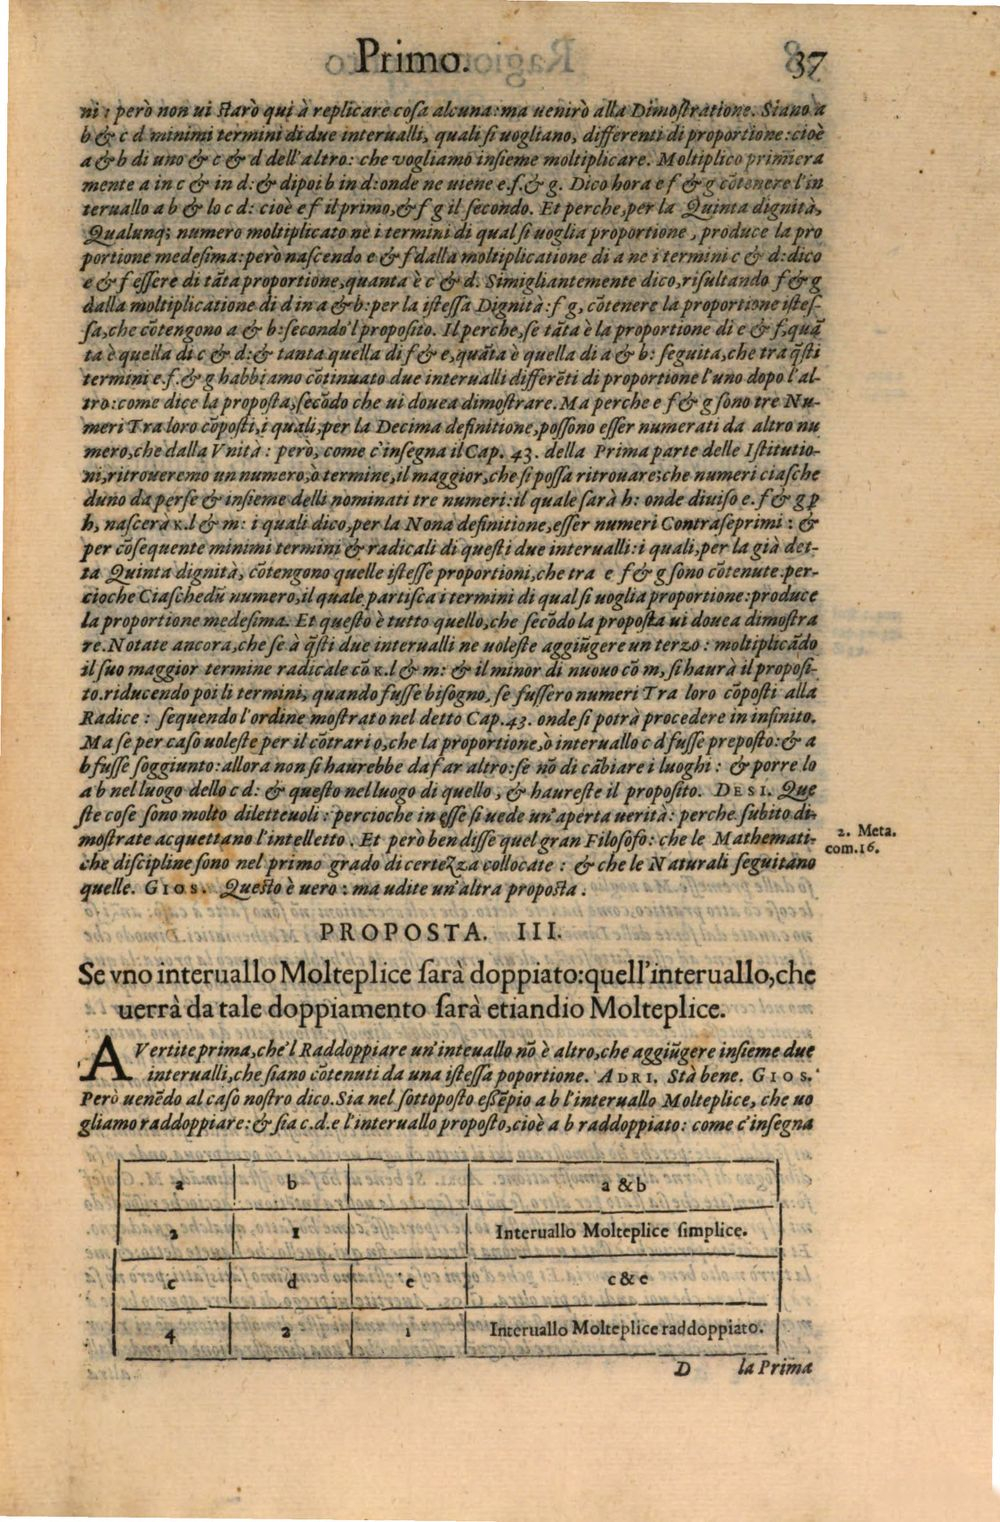 Primo. 37
ni: però non ui starò qui à replicare cosa alcuna: ma uenirò alla Dimostratione. Siano a
b & c d minimi termini di due interualli, quali si uogliano, differenti di proportione: cioè
a & b di uno & c & d dell'altro: che vogliamo insieme moltiplicare. Moltiplico primiera
mente a in c & in d: & dipoi b in d: onde ne uiene e. f. & g. Dico hora e f & g cõtenere l'in
teruallo a b & lo c d: cioè e f il primo, & f g il secondo. Et perche, per la Quinta dignità,
Qualunq; numero moltiplicato ne i termini di qual si uoglia proportione, produce la pro
portione medesima: però nascendo e & f dalla moltiplicatione di a ne i termini c & d: dico
e & f essere di tãta proportione, quanta è c & d. Simigliantemente dico, risultando f & g
dalla moltiplicatione di d in a & b: per la istessa Dignità: f g, cõtenere la proportione istes-
sa, che cõtengono a & b: secondo'l proposito. Il perche, se tãta è la proportione di e & f, quã
ta è quella di c & d: & tanta quella di f & e, quãta è quella di a & b: seguita, che tra q̃sti
termini e. f. & g habbiamo cõtinuato due interualli differẽti di proportione l'uno dopo l'al-
tro: come dice la proposta, secõdo che ui douea dimostrare. Ma perche e f & g sono tre Nu-
meri Tra loro cõposti, i quali, per la Decima definitione, possono esser numerati da altro nu
mero, che dalla Vnità: però, come c'insegna il Cap. 43. della Prima parte delle Istitutio-
ni, ritroueremo un numero, ò termine, il maggior, che si possa ritrouare: che numeri ciasche
duno da perse & insieme delli nominati tre numeri: il quale sarà h: onde diuiso e. f & g p̱
h, nascerà K. l & m: i quali dico, per la Nona definitione, esser numeri Contraseprimi: &
per cõsequente minimi termini & radicali di questi due interualli: i quali, per la già det-
ta Quinta dignità, cõtengono quelle istesse proportioni, che tra e f & g sono cõtenute. per-
cioche Ciaschedũ numero, il quale partisca i termini di qual si uoglia proportione: produce
la proportione medesima. Et questo è tutto quello, che secõdo la proposta ui douea dimostra
re. Notate ancora, che se à q̃sti due interualli ne uoleste aggiũgere un terzo: moltiplicãdo
il suo maggior termine radicale cõ K. l & m: & il minor di nuouo cõ m, si haurà il proposi-
to. riducendo poi li termini, quando fusse bisogno, se fussero numeri Tra loro cõposti alla
Radice: sequendo l'ordine mostrato nel detto Cap. 43. onde si potrà procedere in infinito.
Ma se per caso uoleste per il cõtrario, che la proportione, ò interuallo c d fusse preposto: & a
b fusse soggiunto: allora non si haurebbe da far altro: se nõ di cãbiare i luoghi: & porre lo
a b nel luogo dello c d: & questo nel luogo di quello, & haureste il proposito. DESI. Que
ste cose sono molto diletteuoli: percioche in esse si uede un'aperta uerità: perche subito di-
mostrate acquettano l'intelletto. Et però ben disse quel gran Filosofo: che le Mathemati-
che discipline sono nel primo grado di certezza collocate: & che le Naturali seguitano
quelle. GIOS. Questo è uero: ma udite un'altra proposta.
2. Meta.
com. 16.
PROPOSTA. III.
Se vno interuallo Molteplice sarà doppiato: quell'interuallo, che
uerrà da tale doppiamento sarà etiandio Molteplice.
AVertite prima, che'l Raddoppiare un'inteuallo nõ è altro, che aggiũgere insieme due
interualli, che siano cõtenuti da una istessa poportione. ADRI. Stà bene. GIOS.
Però uenẽdo al caso nostro dico. Sia nel sottoposto essẽpio a b l'interuallo Molteplice, che uo
gliamo raddoppiare: & sia c. d. e l'interuallo proposto, cioè a b raddoppiato: come c'insegna
a b a & b
2 1 Interuallo Molteplice simplice.
c d e c & e
4 2 1 Interuallo Molteplice raddoppiato.
D la Prima